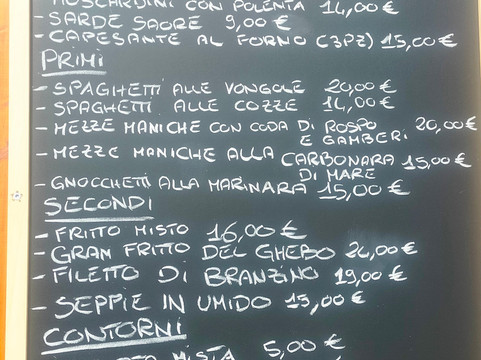 MOSCARDINI CON POLENTA 14,00 €
- SARDE SAORE 9,00 €
- CAPESANTE AL FORNO (3PZ) 15,00 €
PRIMI
- SPAGHETTI ALLE VONGOLE 20,00 €
- SPAGHETTI ALLE COZZE 14,00 €
- MEZZE MANICHE CON CODA DI ROSPO
E GAMBERI 20,00 €
- MEZZE MANICHE ALLA CARBONARA
DI MARE 15,00 €
- GNOCCHETTI ALLA MARINARA 15,00 €
SECONDI
- FRITTO MISTO 16,00 €
- GRAN FRITTO DEL GHEBO 24,00 €
- FILETTO DI BRANZINO 19,00 €
- SEPPIE IN UMIDO 15,00 €
CONTORNI
MISTA 5,00 €